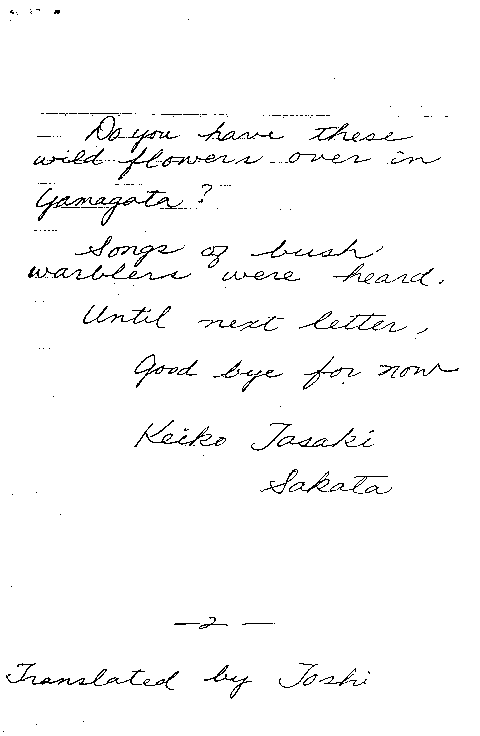 Do you have these
wild flowers over in
Yamagata?
Songs of bush
warblers were heard.
Until next letter,
Good bye for now
Keiko Tasaki
Sakata
—2—
Translated by Toshi